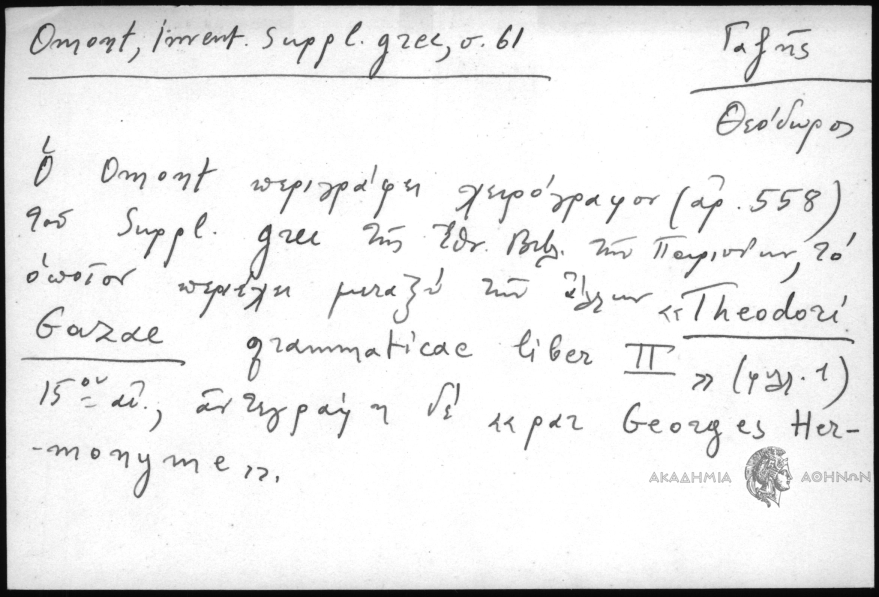 Omont, invent. Suppl. grec, σ. 61
Γαζῆς
Θεόδωρος
Ὁ Omont περιγράφει χειρόγραφον (ἀρ. 558)
τοῦ Suppl. grec τῆς Ἐθν. Βιβ. τῶν Παρισίων, τό
ὁποῖον περιέχει μεταξύ τῶν ἄλλων «Theodori
Gazae grammaticae liber II» (φυλ. 1)
15ου αἰ., ἀντεγράφη δέ «par Georges Her-
-monyme».
ΑΚΑΔΗΜΙΑ ΑΘΗΝΩΝ